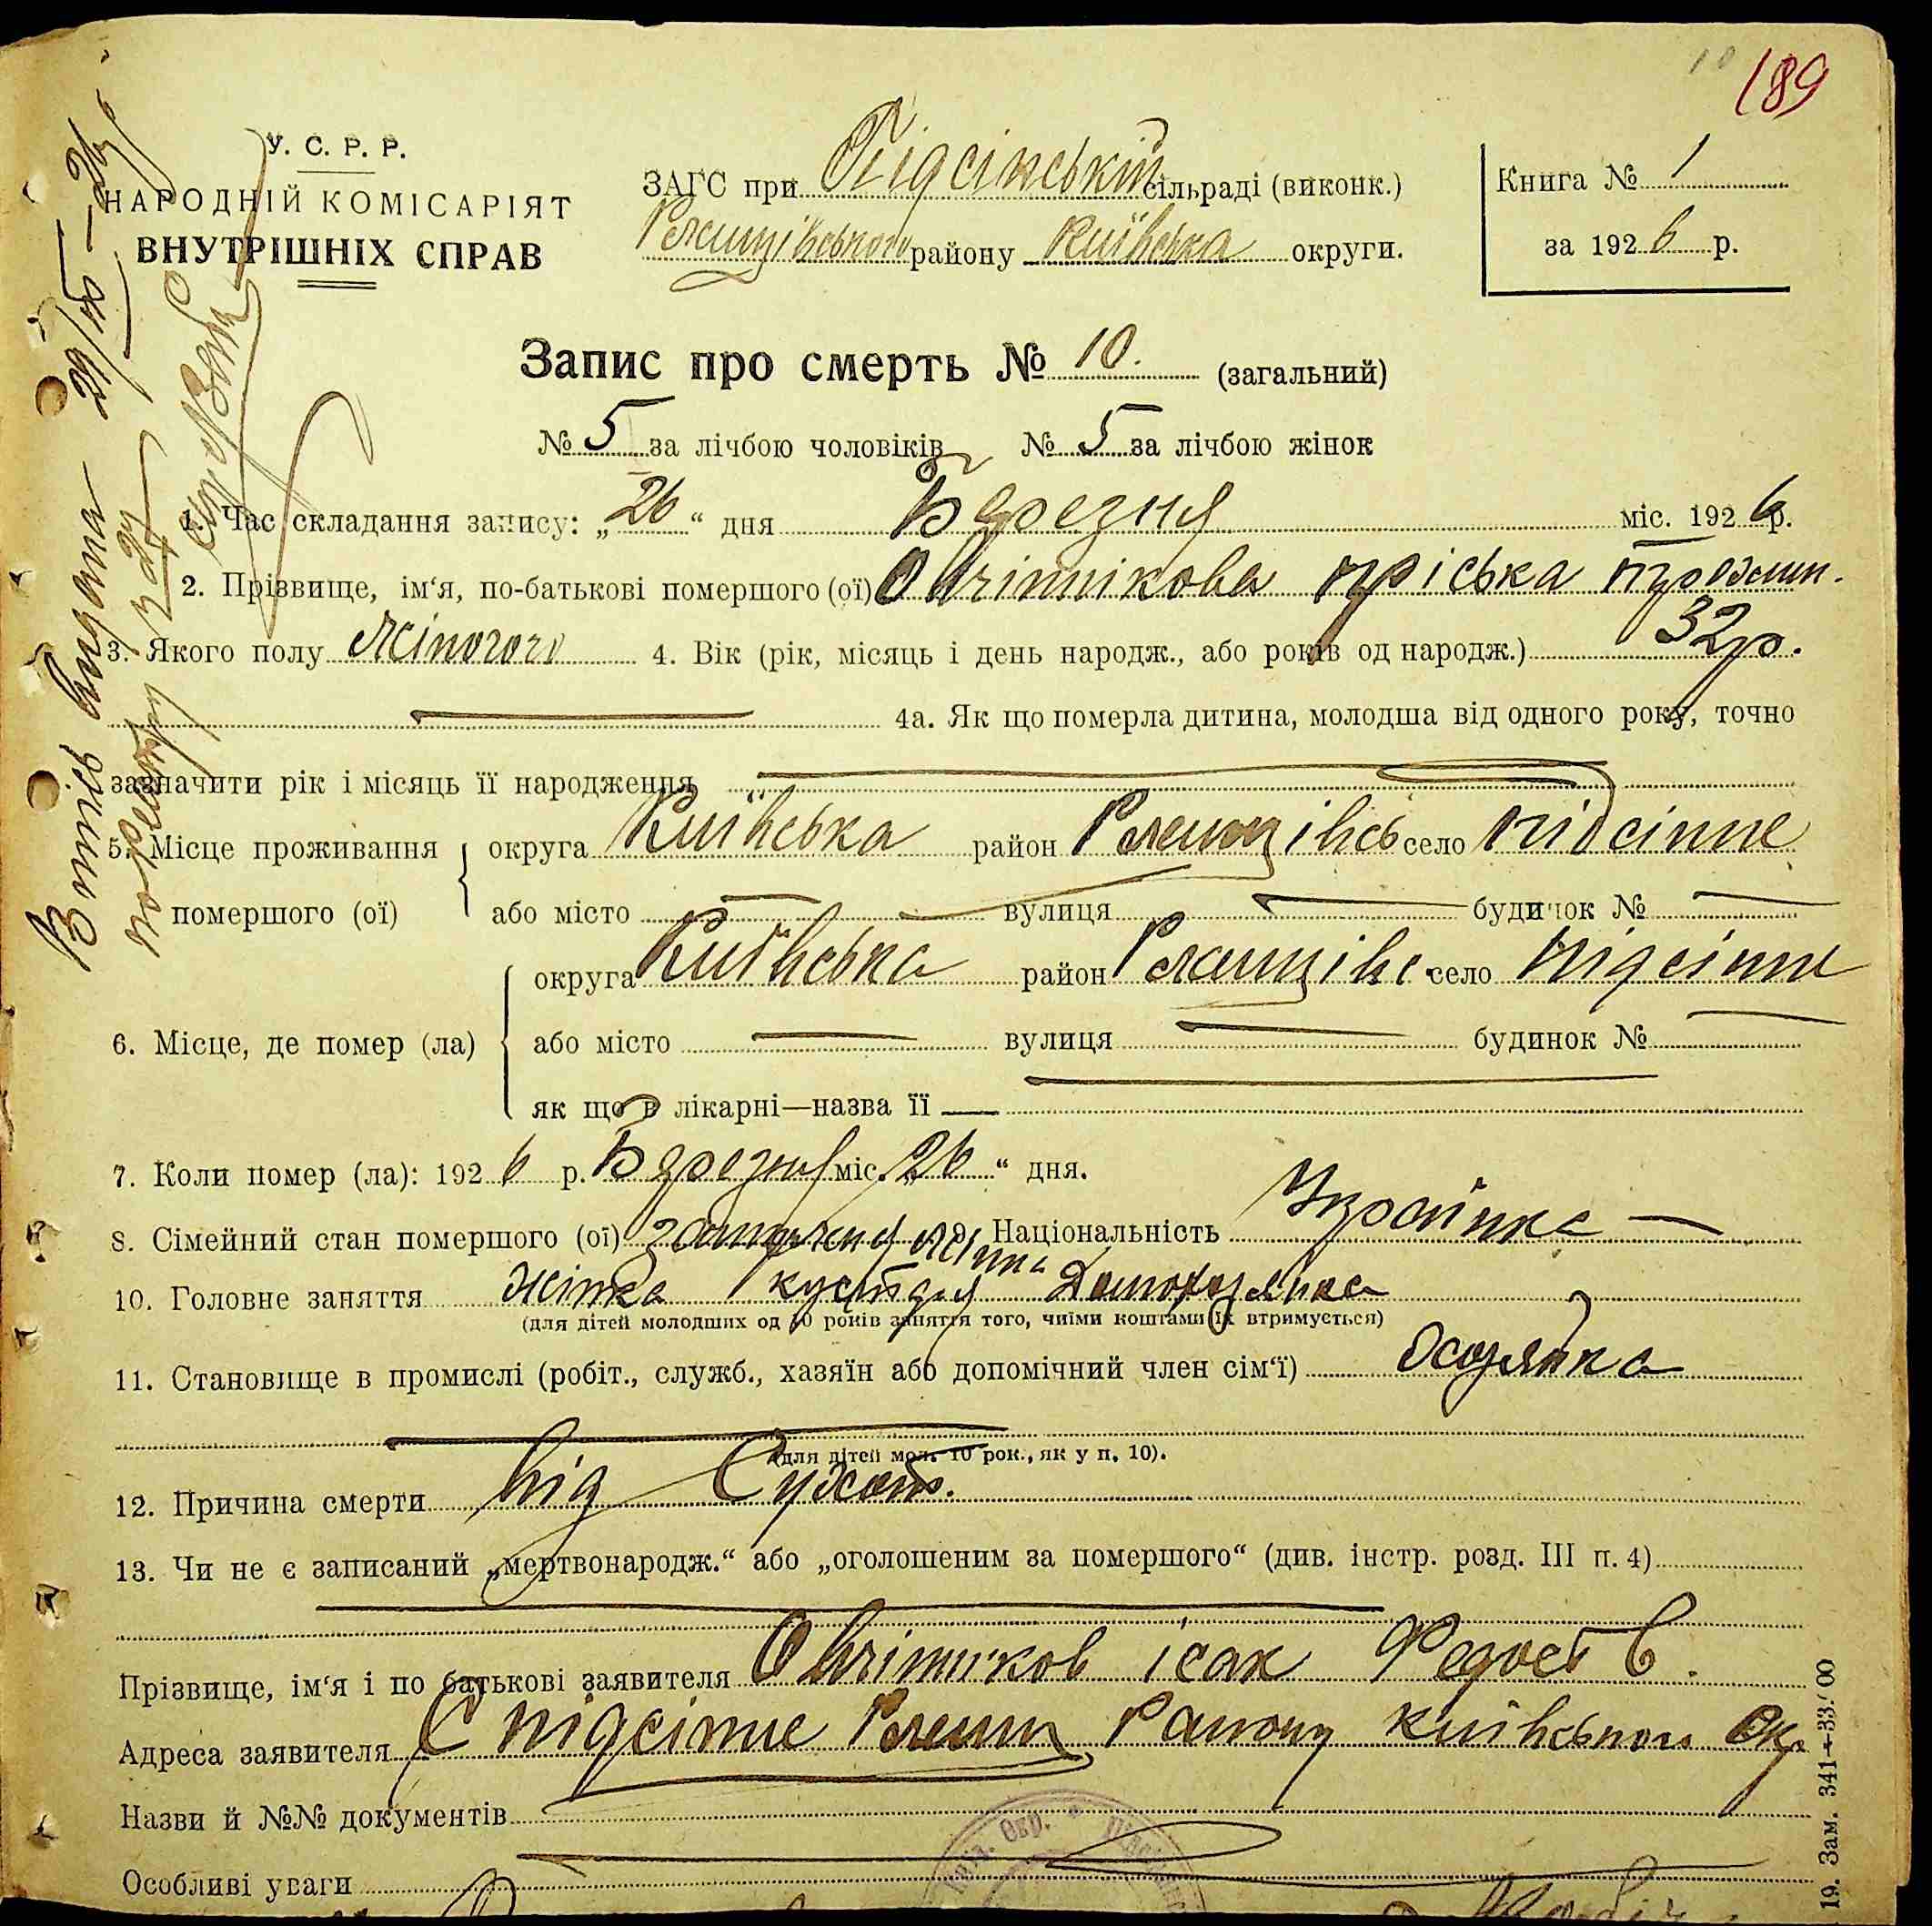 10 189
У. С. Р. Р.
НАРОДНІЙ КОМІСАРІЯТ
ВНУТРІШНІХ СПРАВ
ЗАГС при Підсінський сільраді (виконк.)
району Київська округи.
Книга № 1
за 1926 р.
Запис про смерть № 10. (загальний)
№ 5 за лічбою чоловіків № 5 за лічбою жінок
1. Час складання запису: „26“ дня Березня міс. 1926 р.
2. Прізвище, ім‘я, по-батькові помершого (ої) Овчінікова пріська
3. Якого полу жіночого 4. Вік (рік, місяць і день народж., або років од народж.) 32 р.
4а. Як що померла дитина, молодша від одного року, точно
зазначити рік і місяць її народження
5. Місце проживання помершого (ої)
округа Київська район село підсінне
або місто вулиця будинок №
6. Місце, де помер (ла)
округа Київська район село підсінне
або місто вулиця будинок №
як що в лікарні—назва її
7. Коли помер (ла): 1926 р. Березня міс. „26“ дня.
8. Сімейний стан помершого (ої) замужня жінка 9. Національність Українка
10. Головне заняття жінка кустаря Домохозяйка
(для дітей молодших од 10 років заняття того, чиїми коштами їх втримується)
11. Становище в промислі (робіт., служб., хазяїн або допомічний член сім‘ї) хозяйка
(для дітей мол. 10 рок., як у п. 10).
12. Причина смерти від Сухот.
13. Чи не є записаний „мертвонародж.“ або „оголошеним за помершого“ (див. інстр. розд. III п. 4)
Прізвище, ім‘я і по батькові заявителя Овчінніков ісак Федосієв.
Адреса заявителя С підсінне Району київської Ок.
Назви й №№ документів
Особливі уваги
Витяг видана 29/III—26
19. Зам. 341—33/00